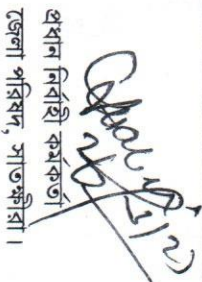 প্রধান নির্বাহী কর্মকর্তা
জেলা পরিষদ, সাতক্ষীরা।